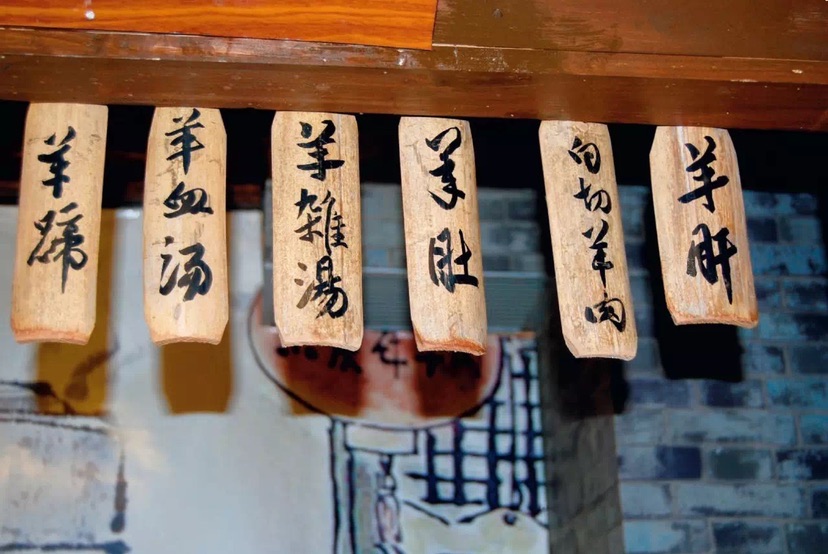 羊蹄
羊血汤
羊雑湯
羊肚
白切羊肉
羊肝